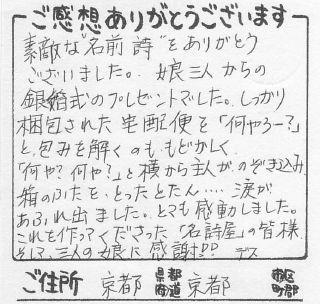 ご感想ありがとうございます
素敵な"名前詩"をありがとう
ございました。娘三人からの
銀婚式のプレゼントでした。しっかり
梱包された宅配便を「何やろー?」
と、包みを解くのももどかしく
「何や?何や?」と横から主人がのぞき込み
箱のふたを、とったとたん‥‥涙が
あふれ出ました。とても感動しました。
これを作ってくださった「名詩屋」の皆様
そして、三人の娘に感謝!! デス
ご住所 京都 都道府県 京都 市区町郡